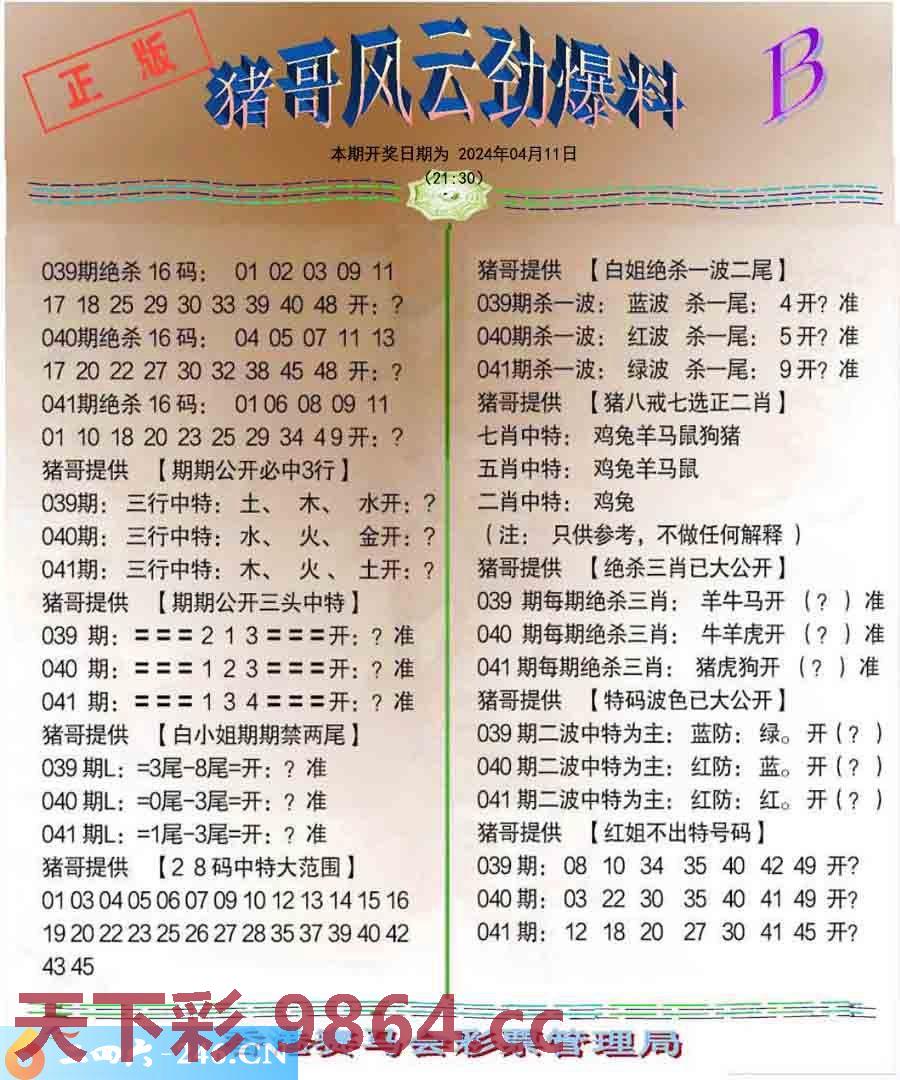 正版
猪哥风云劲爆料
B
本期开奖日期为 2024年04月11日
(21:30)
039期绝杀16码： 01 02 03 09 11
17 18 25 29 30 33 39 40 48 开：?
040期绝杀16码： 04 05 07 11 13
17 20 22 27 30 32 38 45 48 开：?
041期绝杀16码： 01 06 08 09 11
01 10 18 20 23 25 29 34 49 开：?
猪哥提供 【期期公开必中3行】
039期：三行中特：土、 木、 水开：?
040期：三行中特：水、 火、 金开：?
041期：三行中特：木、 火、 土开：?
猪哥提供 【期期公开三头中特】
039 期：〓〓〓2 1 3〓〓〓开：? 准
040 期：〓〓〓1 2 3〓〓〓开：? 准
041 期：〓〓〓1 3 4〓〓〓开：? 准
猪哥提供 【白小姐期期禁两尾】
039期L：=3尾-8尾=开：? 准
040期L：=0尾-3尾=开：? 准
041期L：=1尾-3尾=开：? 准
猪哥提供 【28码中特大范围】
01 03 04 05 06 07 09 10 12 13 14 15 16
19 20 22 23 25 26 27 28 35 37 39 40 42
43 45
猪哥提供 【白姐绝杀一波二尾】
039期杀一波： 蓝波 杀一尾： 4开? 准
040期杀一波： 红波 杀一尾： 5开? 准
041期杀一波： 绿波 杀一尾： 9开? 准
猪哥提供 【猪八戒七选正二肖】
七肖中特： 鸡兔羊马鼠狗猪
五肖中特： 鸡兔羊马鼠
二肖中特： 鸡兔
（注： 只供参考，不做任何解释 ）
猪哥提供 【绝杀三肖已大公开】
039 期每期绝杀三肖： 羊牛马开 （? ）准
040 期每期绝杀三肖： 牛羊虎开 （? ）准
041 期每期绝杀三肖： 猪虎狗开 （? ）准
猪哥提供 【特码波色已大公开】
039期二波中特为主：蓝防：绿。开(? )
040期二波中特为主：红防：蓝。开(? )
041期二波中特为主：红防：红。开(? )
猪哥提供 【红姐不出特号码】
039期： 08 10 34 35 40 42 49 开?
040期： 03 22 30 35 40 41 49 开?
041期： 12 18 20 27 30 41 45 开?
天下彩 9864.cc
二四六-246.CN
赛马会彩票管理局